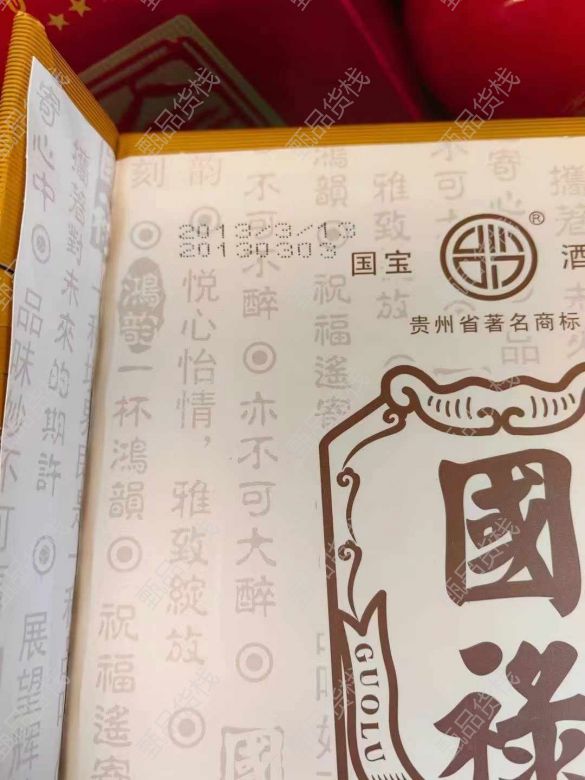 2013/3/13
20130303
国宝
®
酒
贵州省著名商标
國
祿
GUOLU
刻
鴻韵
一杯鴻韻
祝福遙寄
韵
悦心怡情，雅致綻放
不可不醉
亦不可大醉
鴻韻
祝福遙寄
雅致
放
不可
寄心
攜著
品
寄心中
品味妙不可
攜著對未來的期許
展望輝
國
甄品货栈